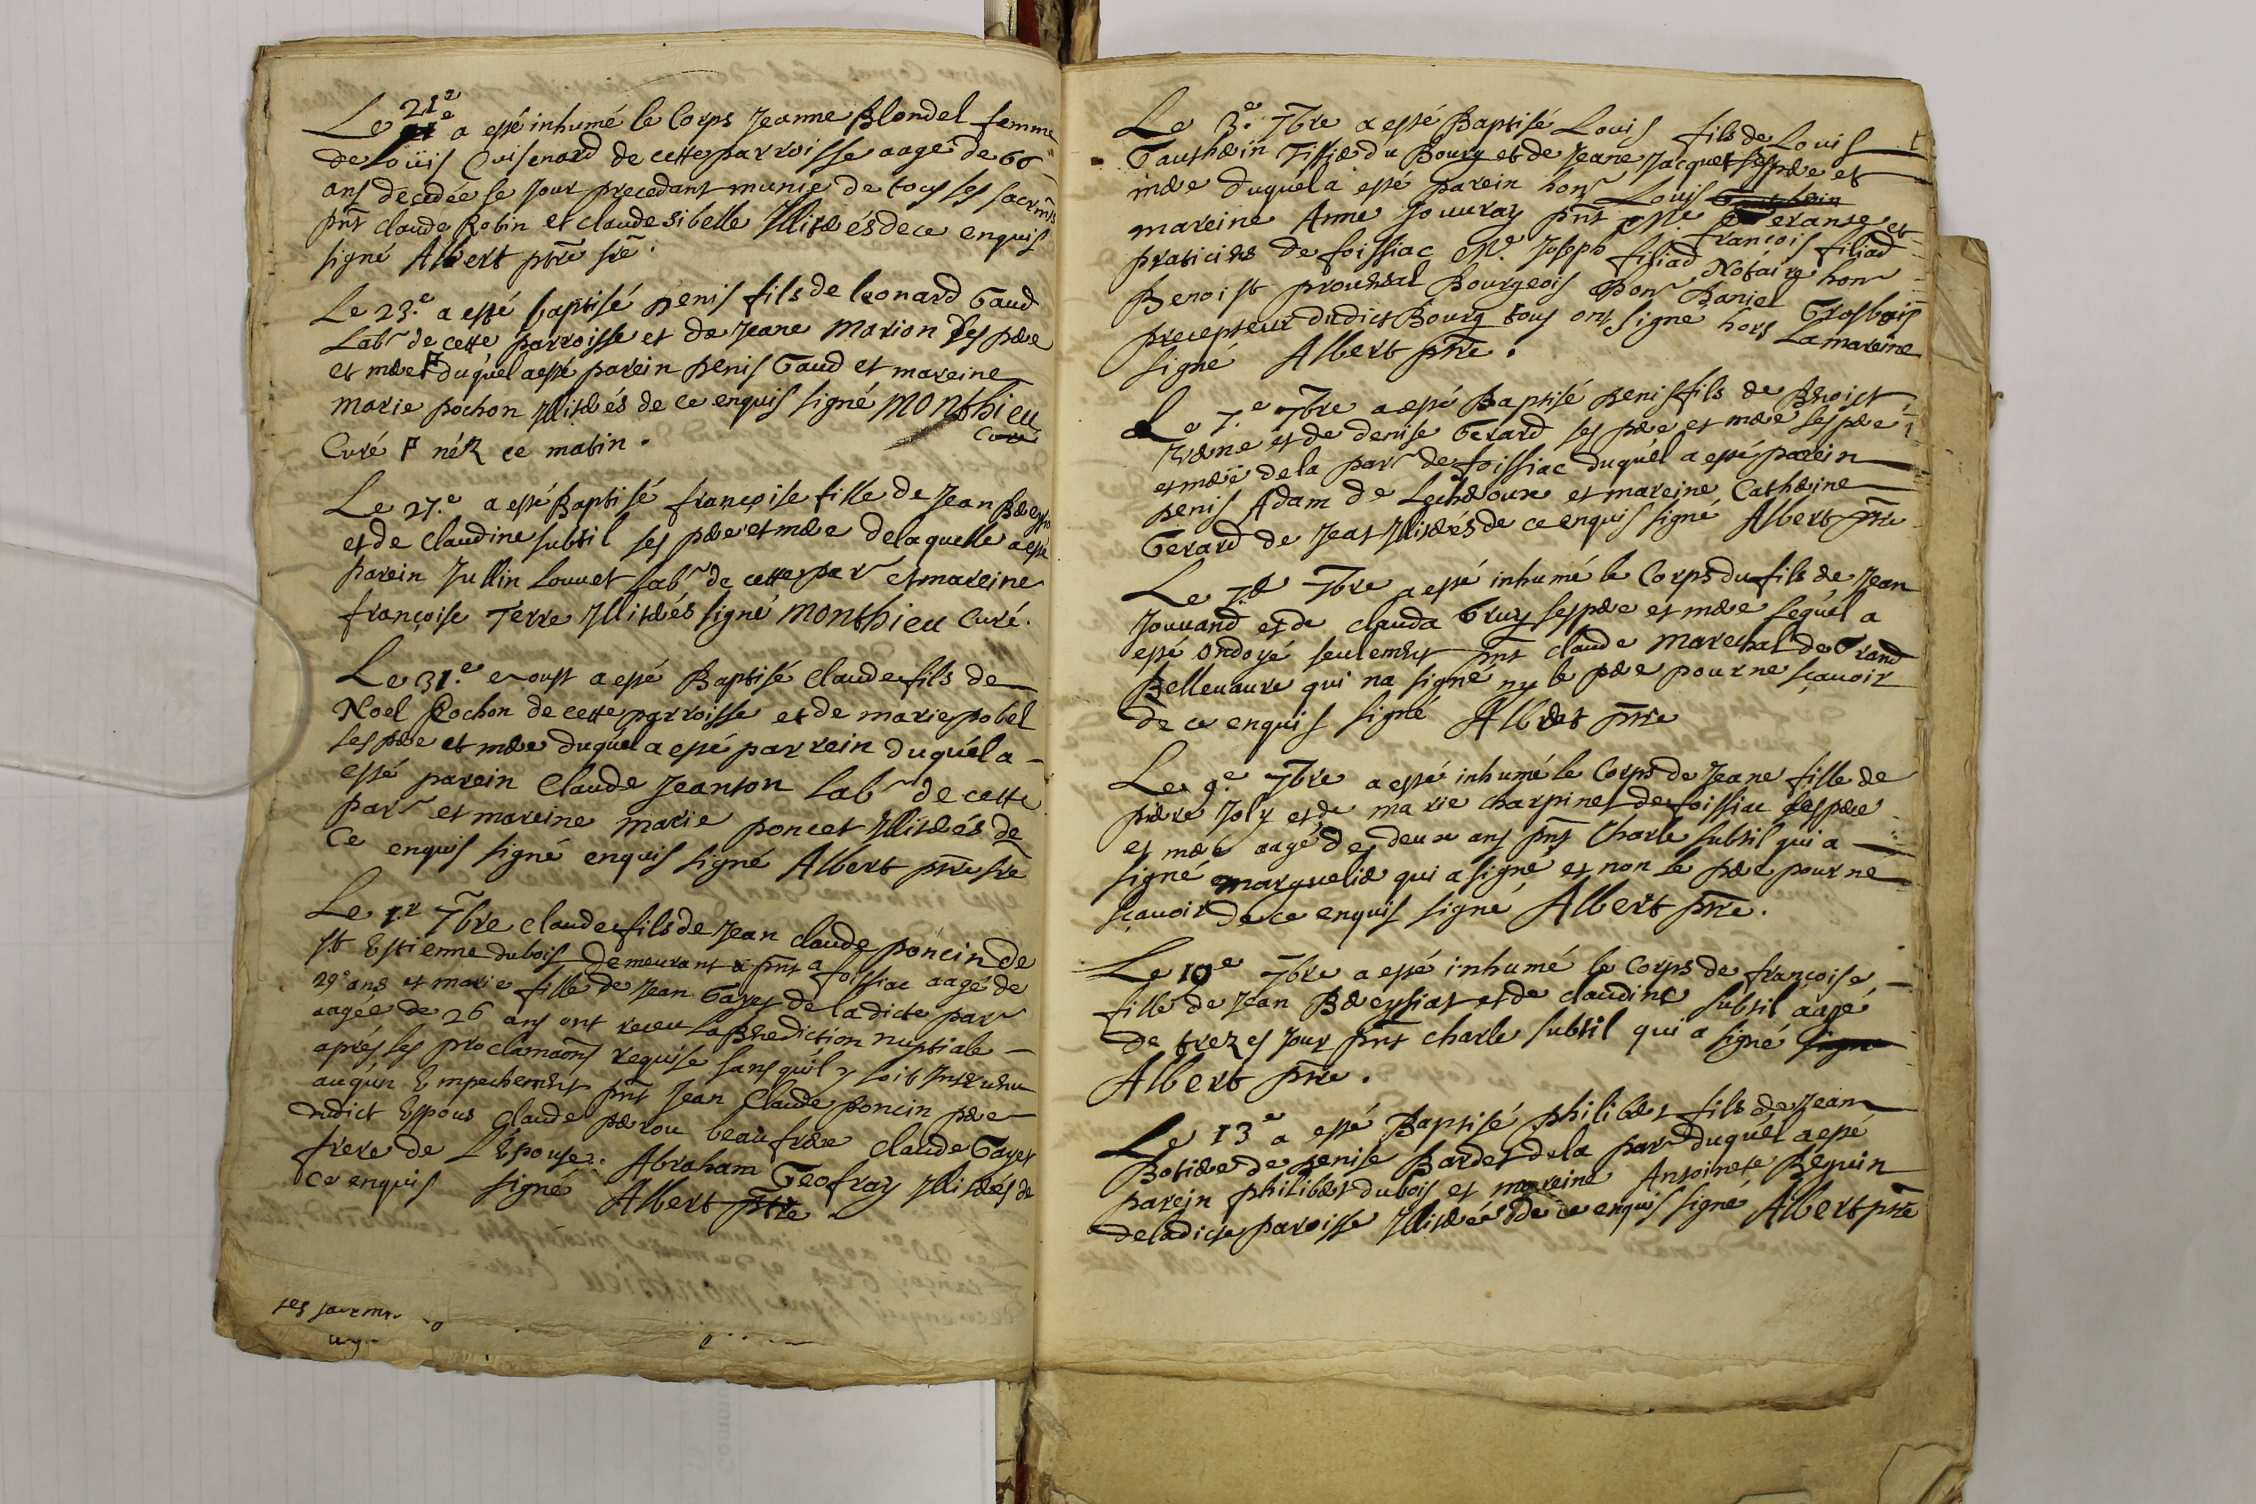 Le 21e a esté inhumé le Corps Jeanne Blondel femme
de Loüis Cuisenard de cette parroisse aage de 60
ans decedée le Jour precedant munie de tous les sacrmts
pnt claude Robin et claude sibelle Illiterés de ce enquis
signé Albert ptre sre.
Le 23.e a esté baptisé Denis fils de leonard Gaud
Labr de cette parroisse et de Jeane Marion ses pere
et mere F duquél a esté parein Denis Gaud et mareine
marie pochon Illiterés de ce enquis signé Monthieu
Curé F néz ce matin. Curé
Le 27.e a esté Baptisé françoise fille de Jean
et de claudine subtil ses pere et mere de laquelle a esté
parein Jullin Louuet labr de cette parr et mareine
françoise Terre Illiterés signé Monthieu Curé.
Le 31.e aoust a esté Baptisé claude fils de
Noel Pochon de cette parroisse et de marie pobel
ses pere et mere duquél a esté parrein duquél a
esté parein Claude Jeanton Labr de cette
parr et mareine marie poncet Illiterés de
Ce enquis signé enquis signé Albert ptre sre
Le 1.r 7bre claude fils de Jean claude poncin de
st Estienne dubois demeurant a pnt a foissiac aagé de
29e ans et marie fille de Jean Gayet de ladicte parr
aagée de 26 ans ont receu la Benediction nuptiale
aprés les proclamaons requise sans qu'il y soit Interuenu
auqu'un Empechement pnt Jean Claude poncin pere
dudict Espous Claude perou beau frere claude Gayet
frere de L'Epouse. Abraham Geofray Illiterés de
ce enquis signé Albert ptre.
ses sacrm
Le 3.e 7bre a esté Baptisé Louis fils de Louis
Gautherin Tissier du Bourg et de Jeane Jacquet ses pere et
mere duquél a esté parein honr Louis
mareine Anne Jouuray pnt Me. et
praticiens de foissiac Me. Joseph filiad françois filiad
Benoist prouensal Bourgeois honr Daniel Notaire honr
precepteur dudict Bourg tous ont signé hors La mareine
signé Albert ptre.
Le 7.e 7bre a esté Baptisé Denis fils de Benoict
et de denise Gerard ses pere et mere ses pere
et mere de la parr de foissiac duquél a esté parein
Denis Adam de Lecheroux et mareine Catherine
Gerard de Jeat Illiterés de ce enquis signé Albert ptre
Le 7.e 7bre a esté inhumé le Corps du fils de Jean
Jouuand et de clauda Gruy ses pere et mere lequél a
esté ondoyé seulement pnt claude marechal de Grand
Belleuaure qui na signé ny le pere pour ne sçauoir
de ce enquis signé Albert ptre
Le 9.e 7bre a esté inhumé le Corps de Jeane fille de
pierre Joly et de marie charpinet de foissiac ses pere
et mere aagé de deux ans pnt Charle subtil qui a
signé marguelie qui a signé et non le pere pour ne
sçauoir de ce enquis signé Albert ptre.
Le 10e 7bre a esté inhumé le Corps de françoise
fille de Jean Breyssiat et de claudine subtil aagé
de trezes Jour pnt charle subtil qui a signé signé
Albert ptre.
Le 13e a esté Baptisé philibert fils de Jean
Botier de Denise Bardet de la parr duquél a esté
parein philibert dubois et mareine Antoinete Beguin
de ladicte paroisse Illiterés de ce enquis signé Albert ptre